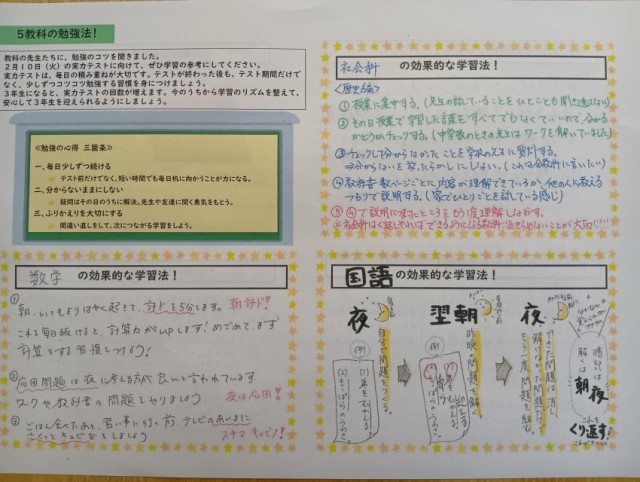 5教科の勉強法！
教科の先生たちに、勉強のコツを聞きました。
2月10日（火）の実力テストに向けて、ぜひ学習の参考にしてください。
実力テストは、毎日の積み重ねが大切です。テストが終わった後も、テスト期間だけでなく、少しずつコツコツ勉強する習慣を身につけましょう。
3年生になると、実力テストの回数が増えます。今のうちから学習のリズムを整えて、
安心して3年生を迎えられるようにしましょう。
≪勉強の心得 三箇条≫
一、毎日少しずつ続ける
テスト前だけでなく、短い時間でも毎日机に向かうことが力になる。
二、分からないままにしない
疑問はその日のうちに解決。先生や友達に聞く勇気をもとう。
三、ふりかえりを大切にする
間違い直しをして、次につながる学習をしよう。
社会科 の効果的な学習法！
①授業に集中する。(先生の話していることをひとことも聞き逃さない)
②その日授業で学習した言葉をすべてでもなくていいので、分かるかどうかチェックする。(中学校のときの先生はワークを解いていました)
③チェックして分からなかったことを学校の先生に質問する。
(これは全教科に言いたい)
④教科書の数ページごとに内容が理解できているか、他の人に教えるつもりで説明する。(家でひとりごとを話している感じ)
⑤④で説明につまったところをもう1度理解しなおす。
数学 の効果的な学習法！
①
朝、いつもよりはやく起きて、計ドを5分します。 朝計ド！
これを毎日続けると、計算力がUPします！めざめて、まず
計算をする習慣をつけよう！
②応用問題は夜に考える方が良いと言われています。
ワークや教科書の問題をやりましょう 夜は応用！
③ごはん食べたあと、習い事に行く前、テレビのあいまに
国語 の効果的な学習法！
夜
自分で問題をつくる。
(例)
翌朝
昨晩の問題を解く。
(例)
夜
できた問題は消し、
解けなかった問題だけで
もう一度問題を組む。
暗記は夜
解くのは朝
くり返す！